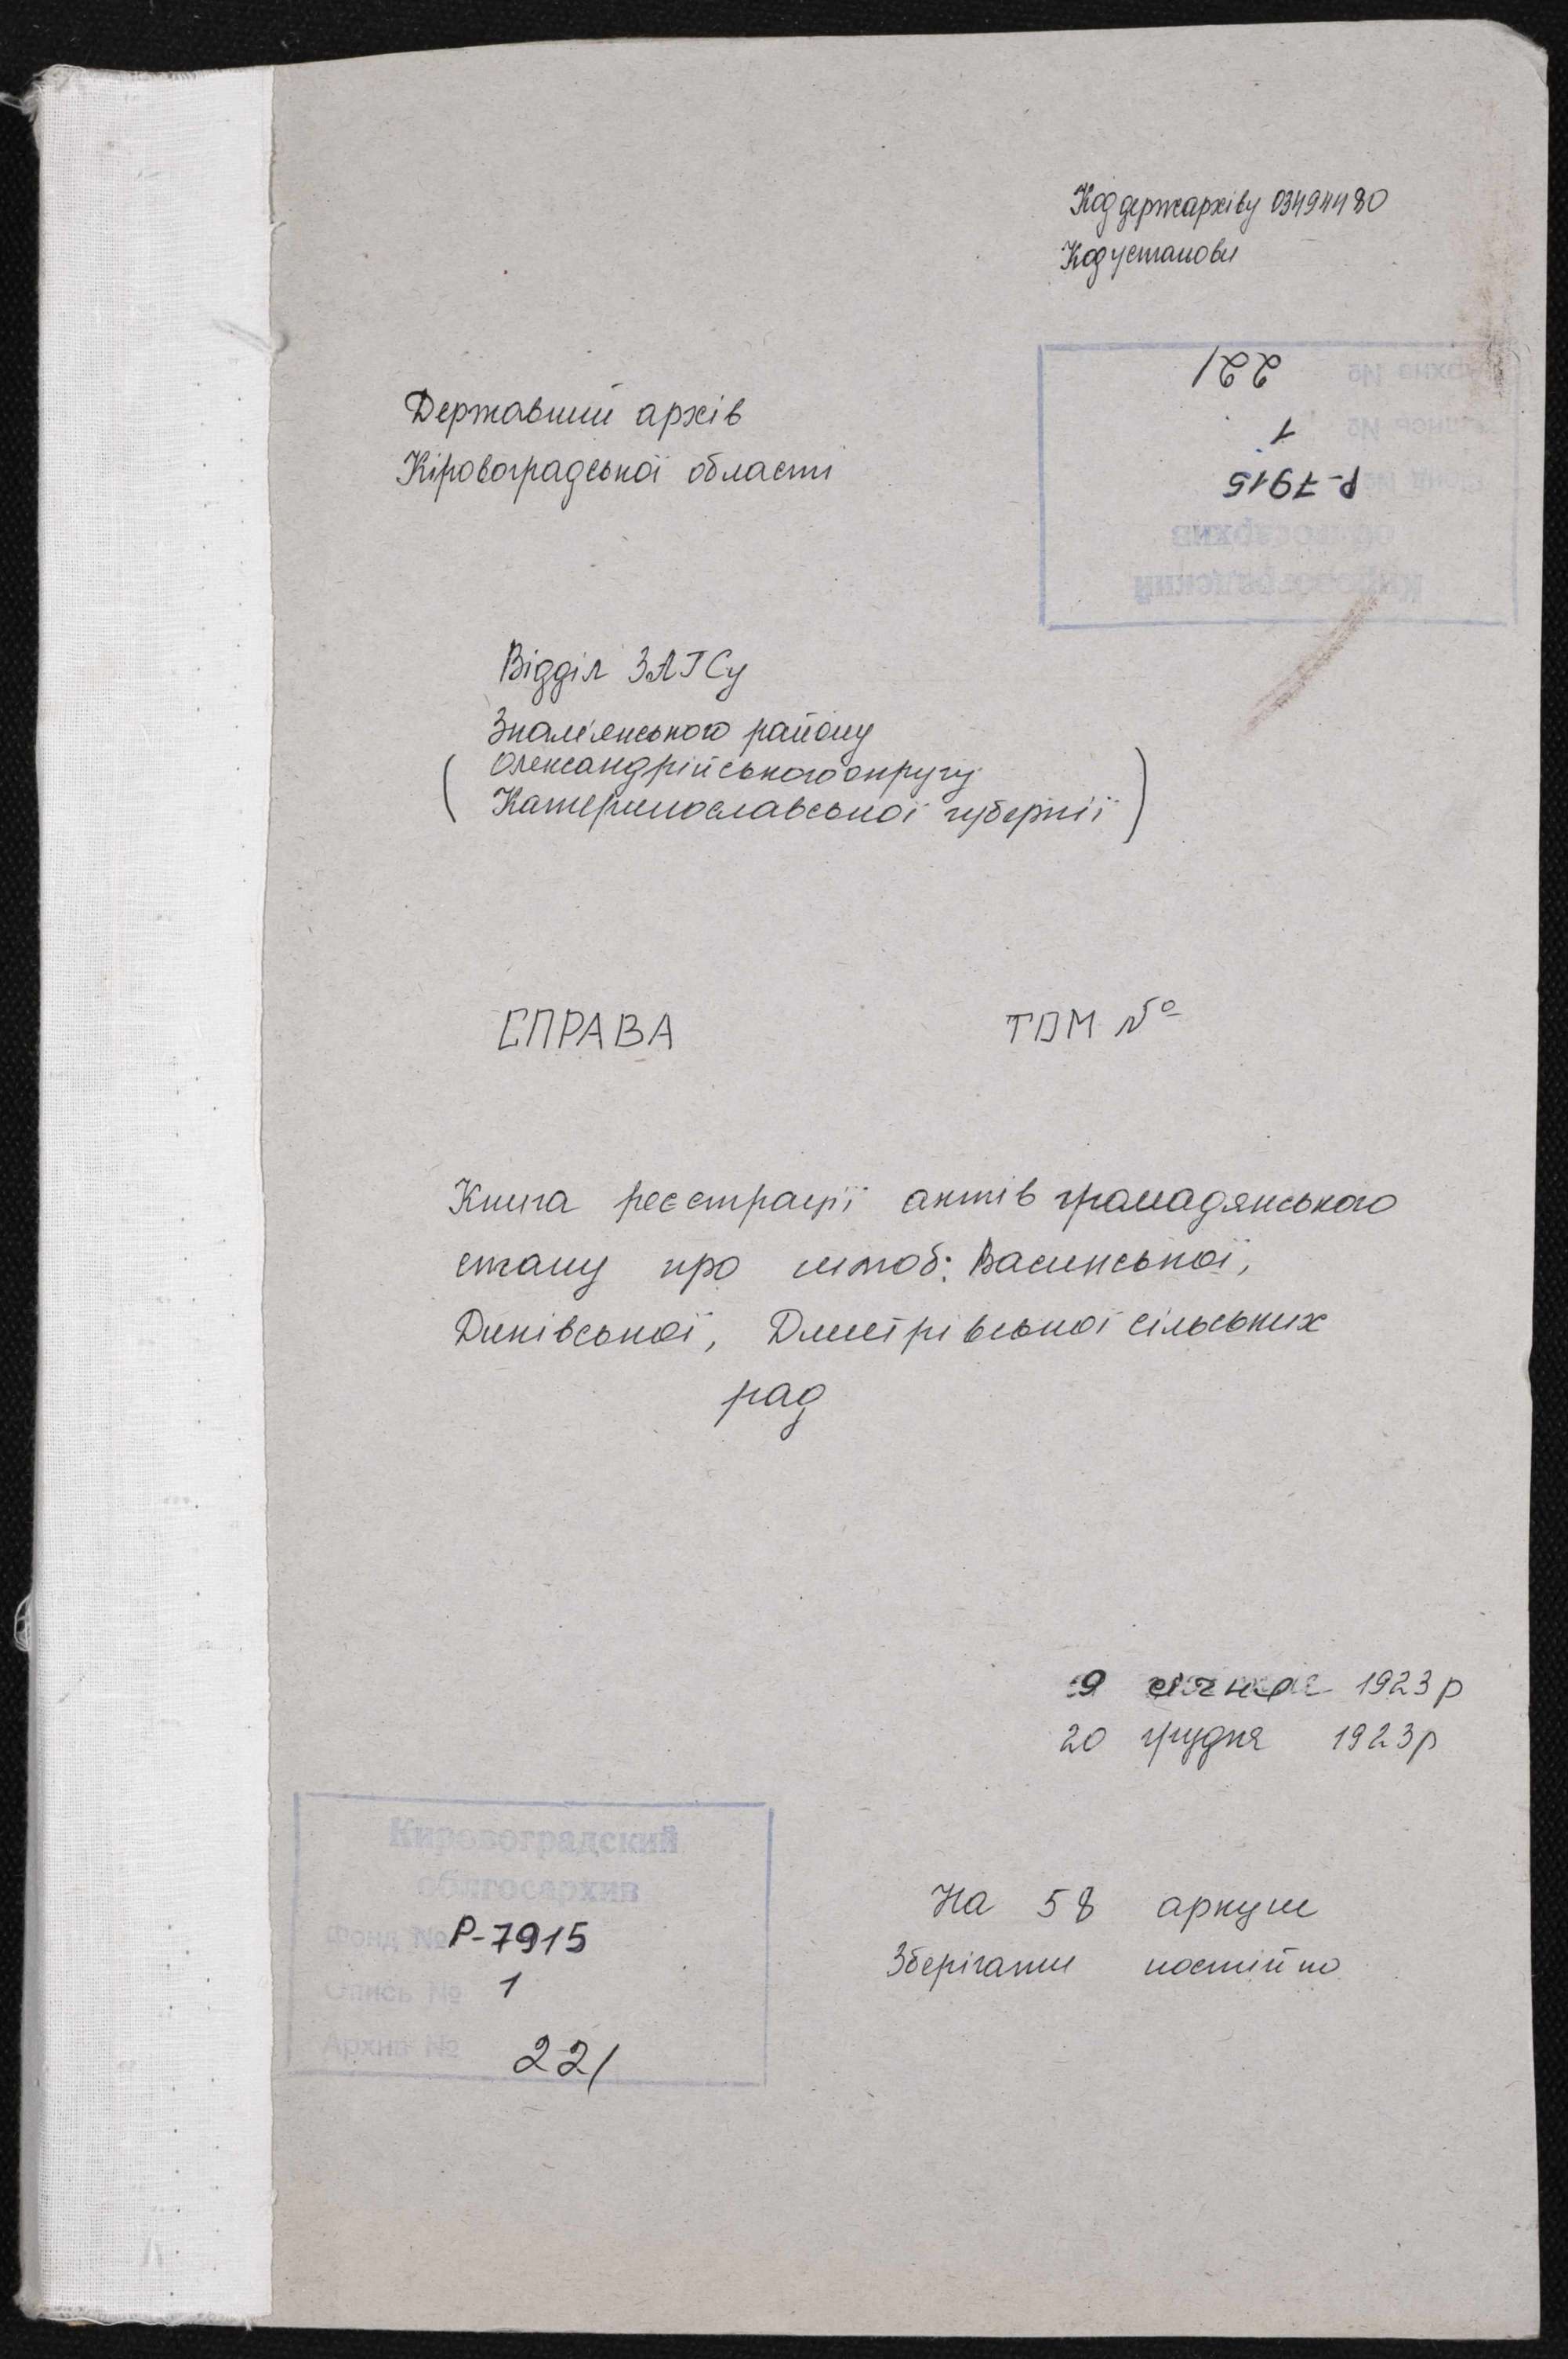 Код держархіву 03494480
Код установи
Кировоградский
облгосархив
Фонд № Р-7915
Опись № 1
Архив № 221
Державний архів
Кіровоградської області
Відділ ЗАГСу
Знам'янського району
(Олександрійського округу
Катеринославської губернії)
СПРАВА ТОМ №
Книга реєстрації актів громадянського
стану про шлюб: Васинської,
Диківської, Дмитрівської сільських
рад
9 січня 1923р
20 грудня 1923р
Кировоградский
облгосархив
Фонд № Р-7915
Опись № 1
Архив № 221
На 58 аркуш
Зберігати постійно